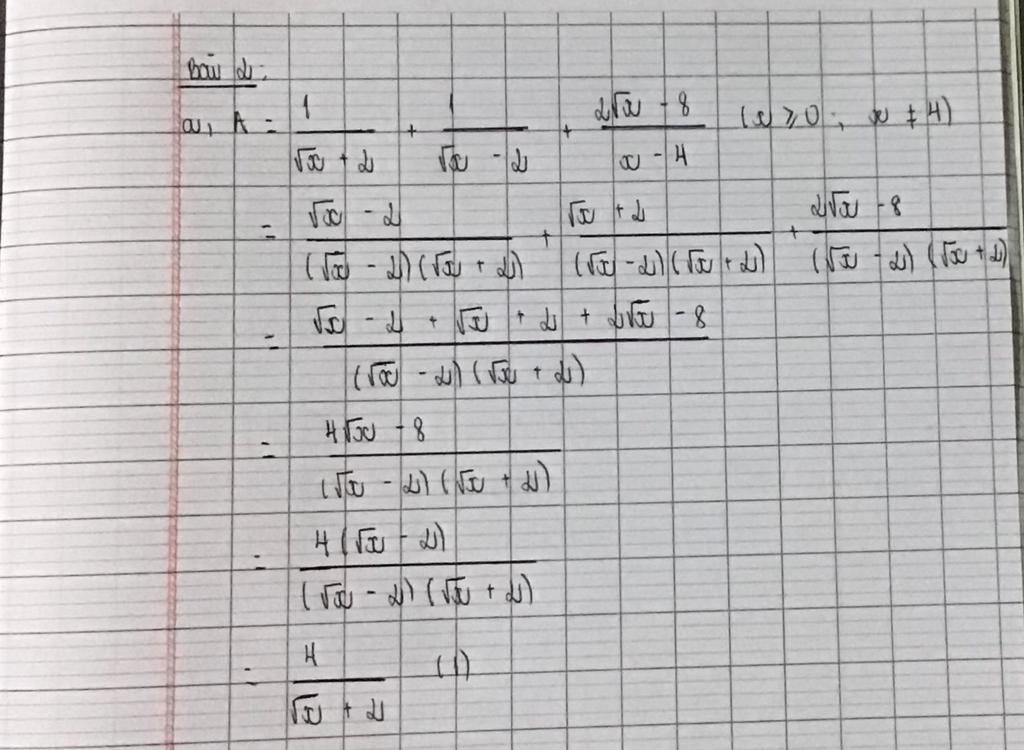 Bài 2:
a, A = 1/(√x + 2) + 1/(√x - 2) + (2√x - 8)/(x - 4) (x ≥ 0; x ≠ 4)
= (√x - 2)/((√x - 2)(√x + 2)) + (√x + 2)/((√x - 2)(√x + 2)) + (2√x - 8)/((√x - 2)(√x + 2))
= (√x - 2 + √x + 2 + 2√x - 8)/((√x - 2)(√x + 2))
= (4√x - 8)/((√x - 2)(√x + 2))
= 4(√x - 2)/((√x - 2)(√x + 2))
= 4/(√x + 2) (1)